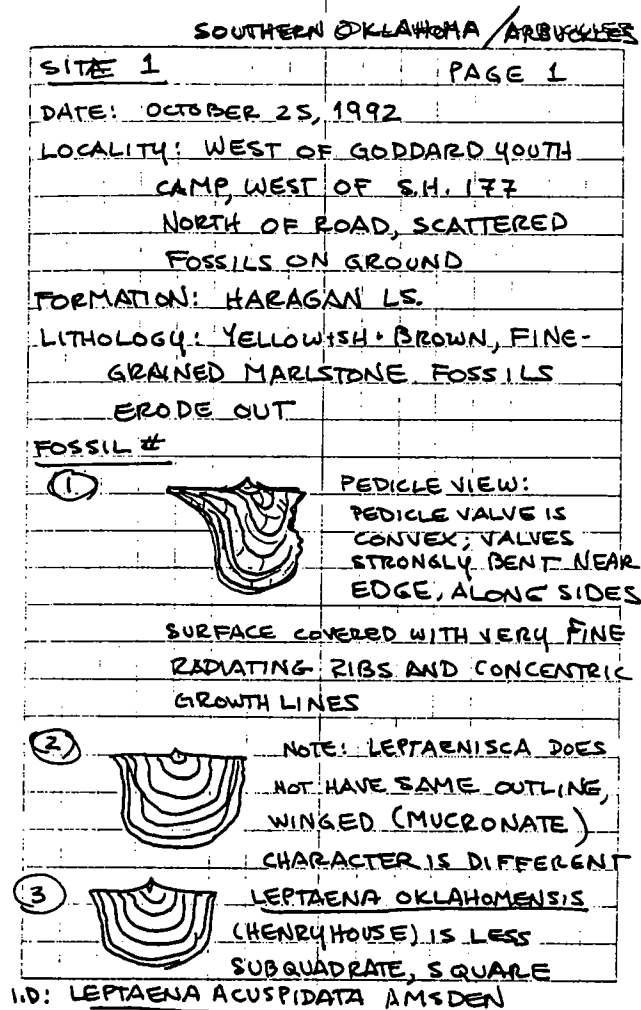 SOUTHERN OKLAHOMA / ARBUCKLES
SITE 1 PAGE 1
DATE: OCTOBER 25, 1992
LOCALITY: WEST OF GODDARD YOUTH
CAMP, WEST OF S.H. 177
NORTH OF ROAD, SCATTERED
FOSSILS ON GROUND
FORMATION: HARAGAN LS.
LITHOLOGY: YELLOWISH-BROWN, FINE-
GRAINED MARLSTONE FOSSILS
ERODE OUT
FOSSIL #
1 PEDICLE VIEW:
PEDICLE VALVE IS
CONVEX; VALVES
STRONGLY BENT NEAR
EDGE, ALONG SIDES
SURFACE COVERED WITH VERY FINE
RADIATING RIBS AND CONCENTRIC
GROWTH LINES
2 NOTE: LEPTAENISCA DOES
NOT HAVE SAME OUTLINE,
WINGED (MUCRONATE)
CHARACTER IS DIFFERENT
3 LEPTAENA OKLAHOMENSIS
(HENRYHOUSE) IS LESS
SUBQUADRATE, SQUARE
I.D: LEPTAENA ACUSPIDATA AMSDEN